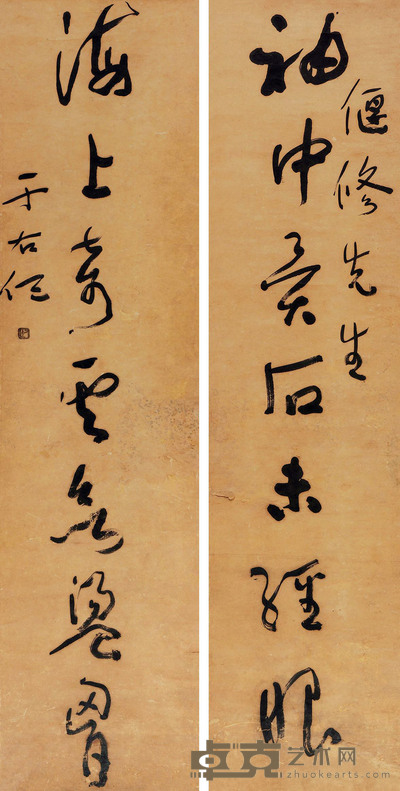 偃修先生
袖中異石未經眼
海上奇雲欲盪胷
于右任
卓克艺术网
zhuokearts.com